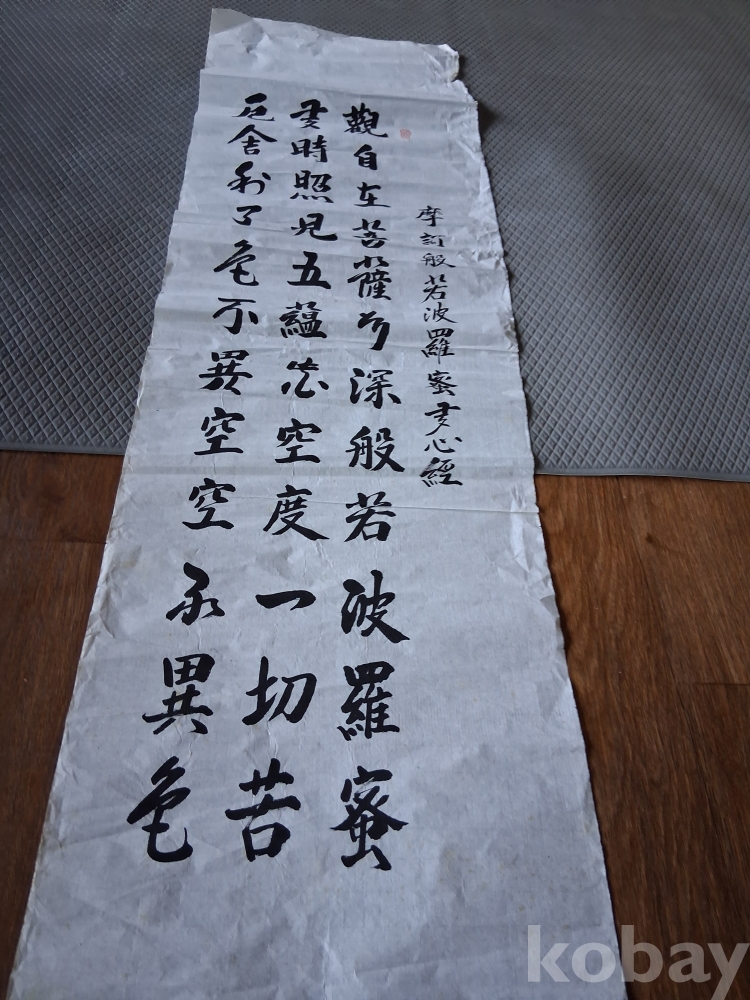 摩訶般若波羅蜜多心經
觀自在菩薩行深般若波羅蜜
多時照見五蘊皆空度一切苦
厄舍利子色不異空空不異色
kobay